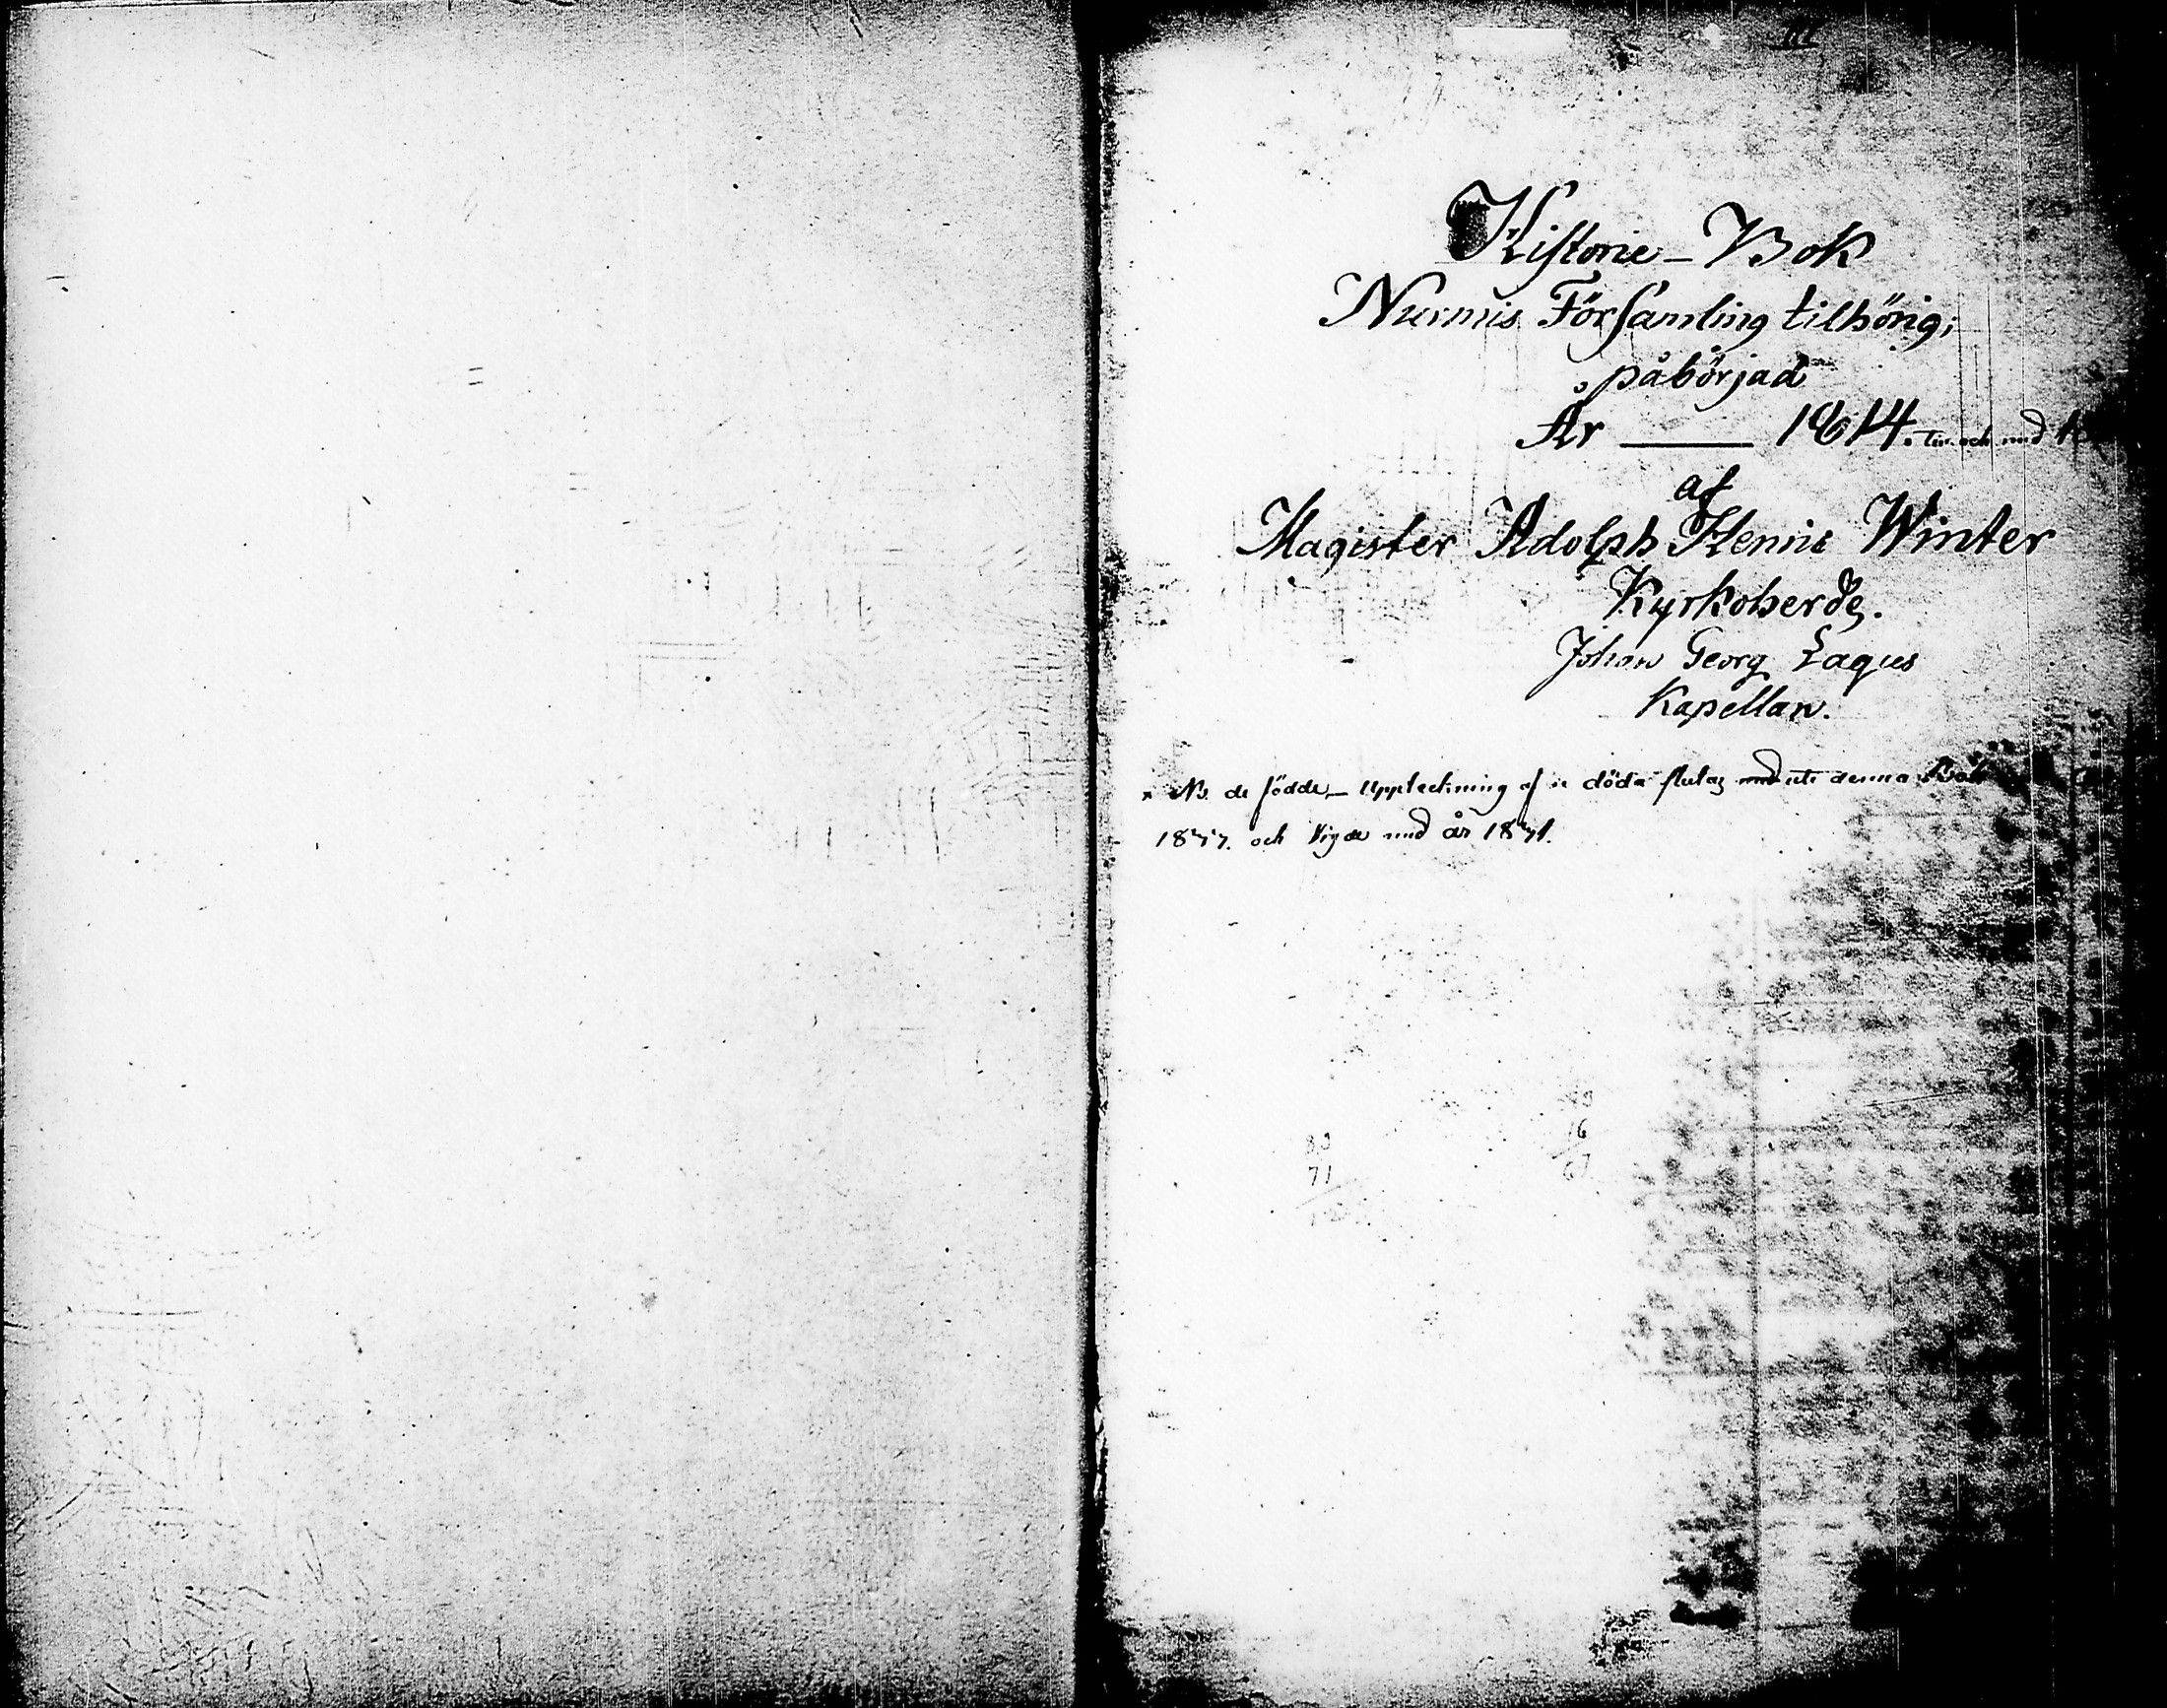 Historie-Bok
Nurmis Församling tilhörig;
påbörjad
År — 1814. till och med
af
Magister Adolph Henric Winter
Kyrkoherde.
Johan Georg Lagus
Kapellan.
x NB. de födde — Uppteckning af de döda slutas med uti denna Bok
1877. och Vigde med år 1871.
83
71
6